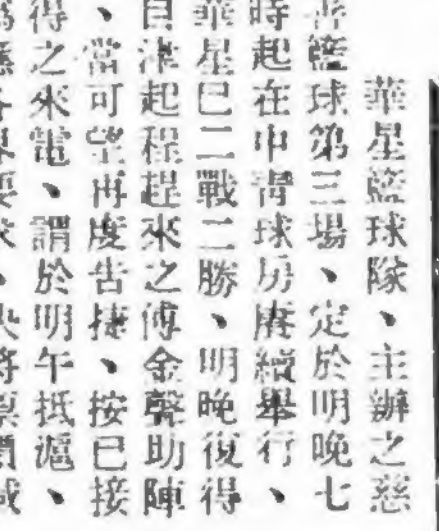 華星籃球隊、主辦之慈
善籃球第三場、定於明晚七
時起在中青球房賡續舉行、
華星已二戰二勝、明晚復得
自津起程趕來之傅金聲助陣
、當可望再度告捷、按已接
得之來電、謂於明午抵滬、